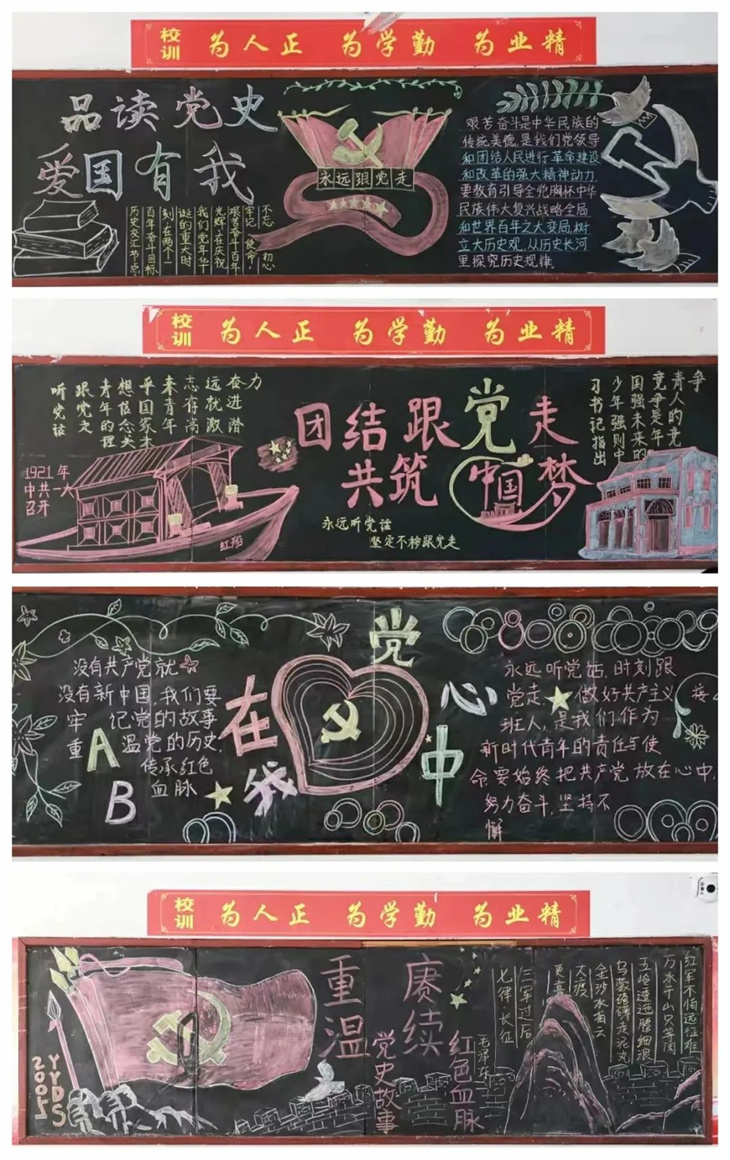 校训 为人正 为学勤 为业精
品读党史
爱国有我
不忘 初心
牢记 使命!
艰苦奋斗百年
光辉,在庆祝
我们党百年华
诞的重大时
刻,在两个一
百年奋斗目标
历史交汇节点
永远跟党走
艰苦奋斗是中华民族的
传统美德,是我们党领导
和团结人民进行革命建设
和改革的强大精神动力,
要教育引导全党胸怀中华
民族伟大复兴战略全局
和世界百年之大变局,树
立大历史观,从历史长河
里探究历史规律.
校训 为人正 为学勤 为业精
听党话
跟党走
青年的理
想信念关
乎国家未
来青年
志存高
远就激
奋进潜
力
1921年
中共一大
召开
红船
团结跟党走
共筑中国梦
永远听党话
坚定不移跟党走
习书记指出
少年强则中
国强未来的
竞争是年
青人的竞
争
没有共产党就
没有新中国,我们要
牢记党的故事
重温党的历史,
传承红色
血脉
A
B
党
在我心中
永远听党话,时刻跟
党走,做好共产主义接
班人,是我们作为
新时代青年的责任与使
命,要始终把共产党放在心中,
努力奋斗,坚持不
懈
校训 为人正 为学勤 为业精
2005
YYDS
重温
党史故事
赓续
红色血脉
七律·长征
毛泽东
红军不怕远征难
万水千山只等闲
五岭逶迤腾细浪
乌蒙磅礴走泥丸
金沙水拍云
大渡
更喜
三军过后